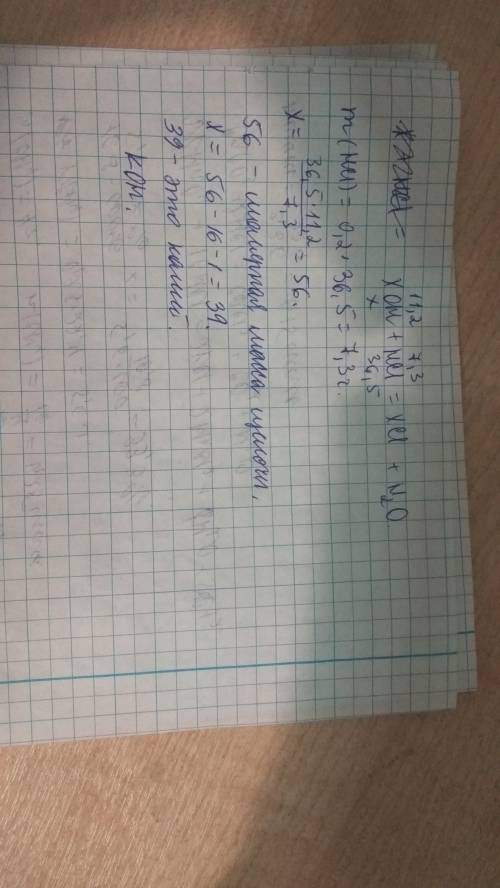 11,2 7,3
XOH + HCl = XCl + H₂O
x 36,5
m(HCl) = 0,2 · 36,5 = 7,3г.
X = 36,5·11,2 / 7,3 = 56.
56 – молярная масса щелочи.
X = 56 - 16 - 1 = 39.
39 - это калий.
KOH.